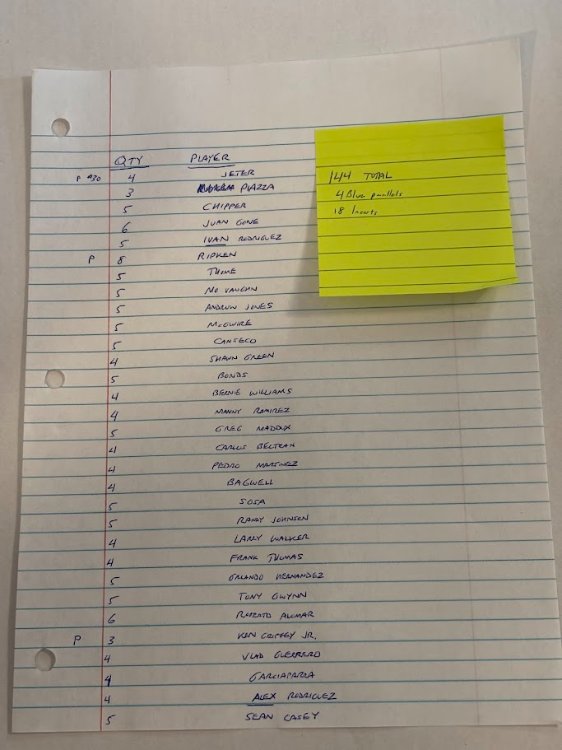 QTY PLAYER
P #30 4 JETER
3 PIAZZA
5 CHIPPER
6 JUAN GONE
5 IVAN RODRIGUEZ
P 8 RIPKEN
5 THOME
5 MO VAUGHN
5 ANDRUW JONES
5 MCGWIRE
5 CANSECO
4 SHAWN GREEN
5 BONDS
4 BERNIE WILLIAMS
4 MANNY RAMIREZ
5 GREG MADDUX
4 CARLOS BELTRAN
4 PEDRO MARTINEZ
4 BAGWELL
5 SOSA
5 RANDY JOHNSON
4 LARRY WALKER
4 FRANK THOMAS
5 ORLANDO HERNANDEZ
5 TONY GWYNN
6 ROBERTO ALOMAR
P 3 KEN GRIFFEY JR.
4 VLAD GUERRERO
4 GARCIAPARRA
4 ALEX RODRIGUEZ
5 SEAN CASEY
144 TOTAL
4 Blue parallels
18 Inserts